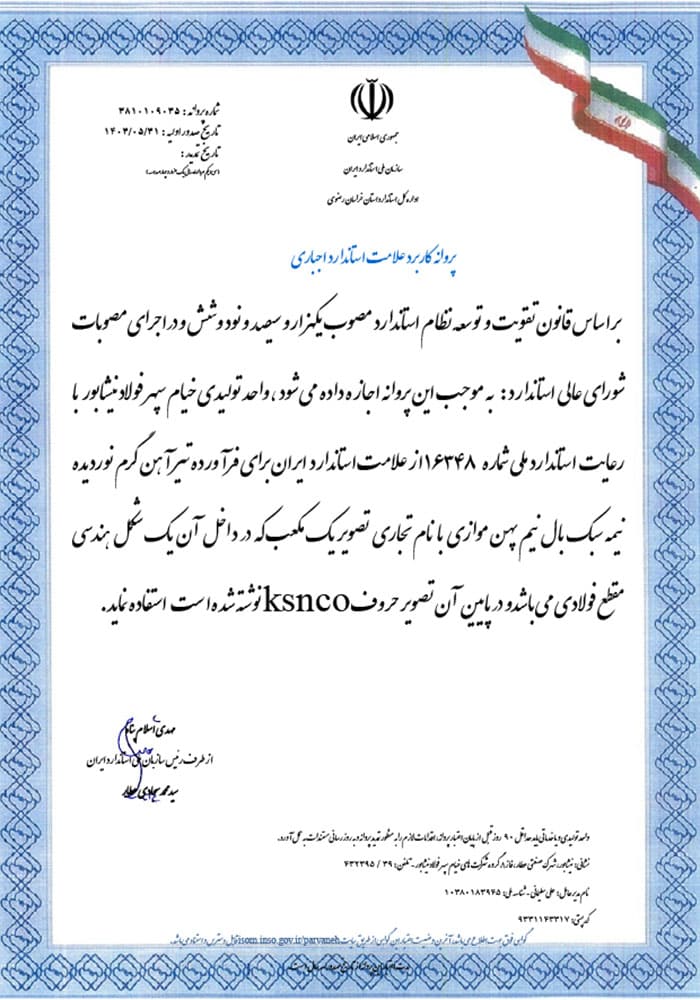 جمهوری اسلامی ایران
سازمان ملی استاندارد ایران
اداره کل استاندارد استان خراسان رضوی
شماره پروانه: ۳۸۱۰۱۰۹۰۳۵
تاریخ صدور اولیه: ۱۴۰۳/۰۵/۳۱
تاریخ تمدید:
پروانه کاربرد علامت استاندارد اجباری
براساس قانون تقویت و توسعه نظام استاندارد مصوب یکهزار و سیصد و نود و شش و در اجرای مصوبات
شورای عالی استاندارد: به موجب این پروانه اجازه داده می شود، واحد تولیدی خیام سپهر فولاد نیشابور با
رعایت استاندارد ملی شماره ۱۶۳۴۸ از علامت استاندارد ایران برای فرآورده تیرآهن گرم نوردیده
نیمه سبک بال نیم پهن موازی با نام تجاری تصویر یک مکعب که در داخل آن یک شکل هندسی
مقطع فولادی می باشد و در پایین آن تصویر حروف ksnco نوشته شده است استفاده نماید.
مهدی اسلام پناه
از طرف رئیس سازمان ملی استاندارد ایران
سید محمد هادی
واحد تولیدی و یا خدماتی باید حداقل ۹۰ روز قبل از پایان اعتبار پروانه، اقدامات لازم را به منظور تمدید پروانه و به روز رسانی مستندات به عمل آورد.
نشانی: نیشابور، شهرک صنعتی عطار، فاز ۱، گروه شرکت های خیام سپهر فولاد نیشابور - تلفن: ۳۹ / ۴۳۲۳۹۵
نام مدیرعامل: علی سلیمانی - شناسه ملی: ۱۰۳۸۰۱۸۳۹۴۵
کد پستی: ۹۳۳۱۱۴۳۳۱۷
گواهی فوق جهت اطلاع می باشد، آخرین وضعیت اعتبار این گواهی از طریق سایت isom.inso.gov.ir/parvaneh قابل دسترس و استناد می باشد.